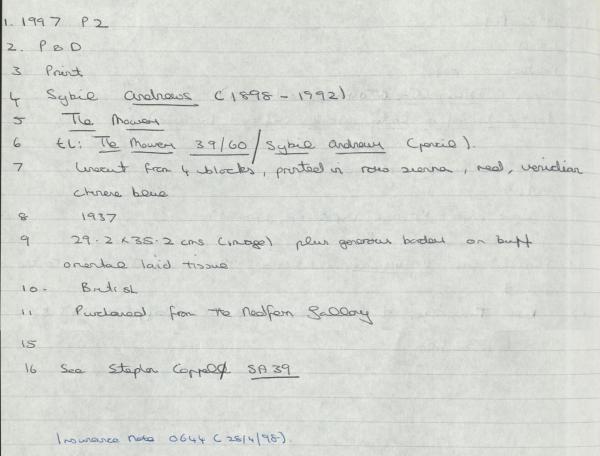 1. 1997 P2
2. P & D
3 Print
4 Sybil Andrews (1898 - 1992)
5 The Mowers
6 EL: The Mowers 39/60 / Sybil Andrews (pencil).
7 Linocut from 4 blocks, printed in raw sienna, red, viridian
chinese blue
8 1937
9 29.2 x 35.2 cms (image) plus generous borders on buff
oriental laid tissue
10. British
11 Purchased from the Redfern Gallery
15
16 See Stephen Coppel SA39
Insurance note 0644 (28/4/98).